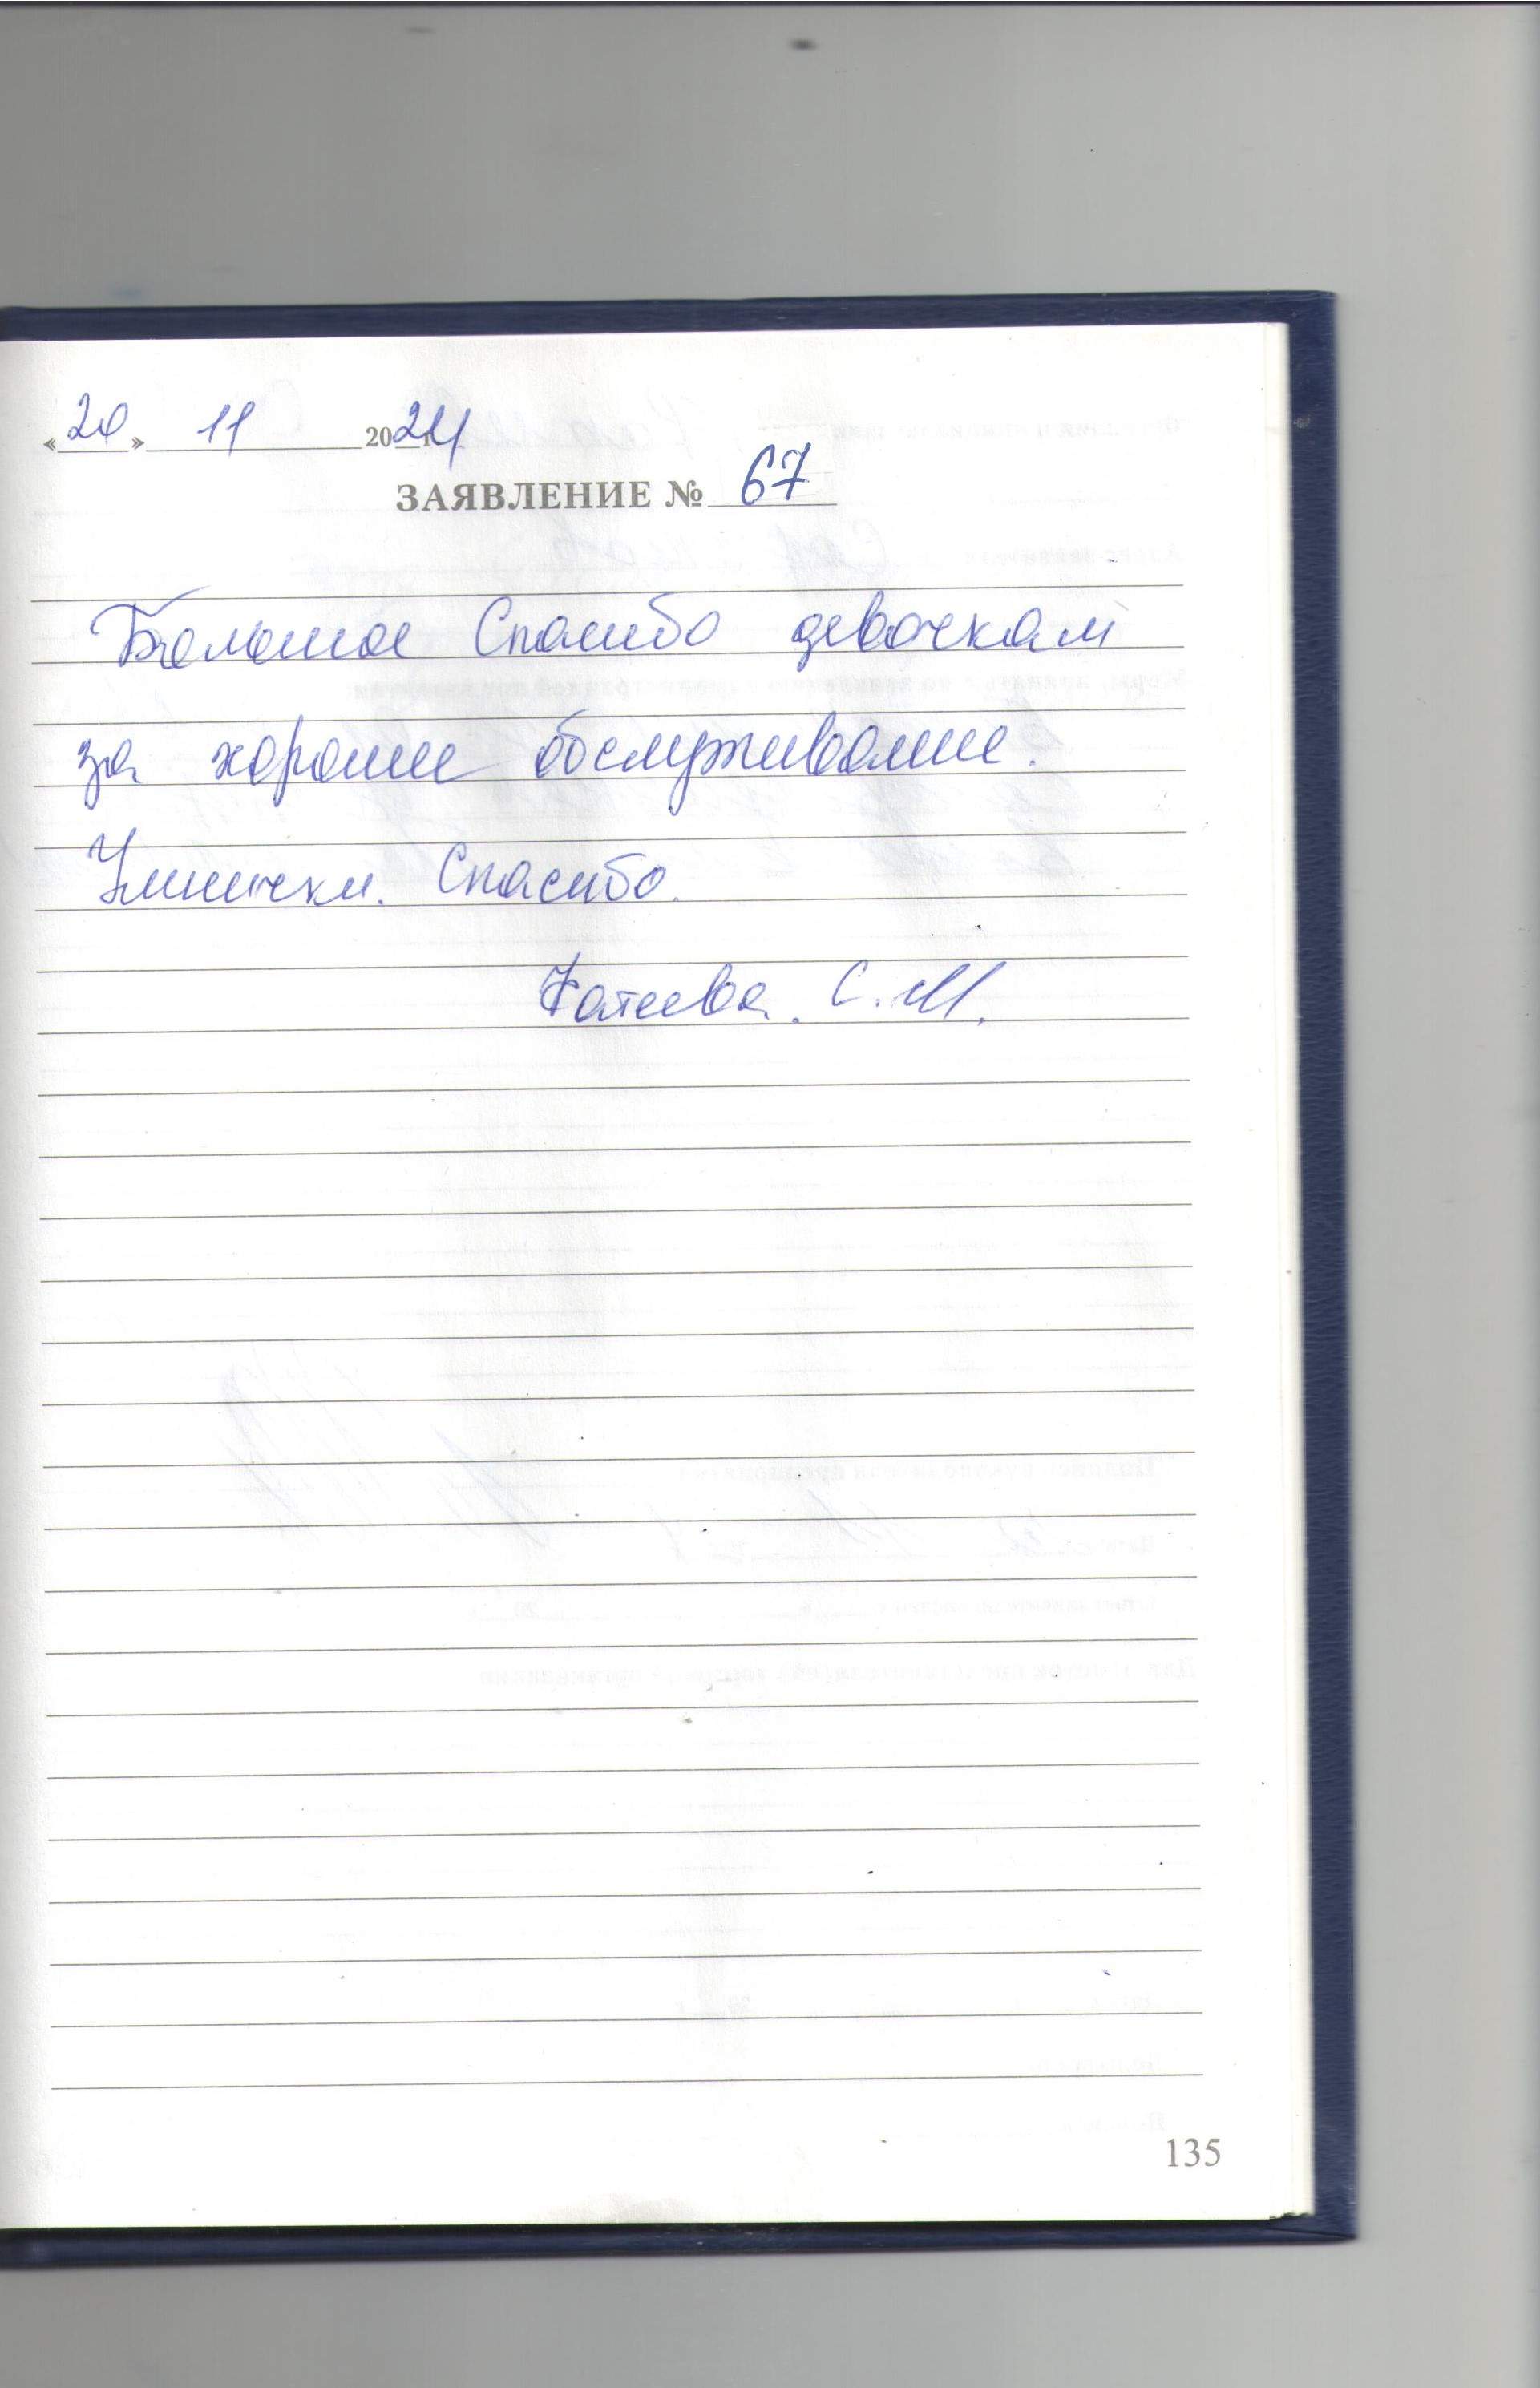 «20» 11 2024 г
ЗАЯВЛЕНИЕ № 67
Большое Спасибо девочкам
за хорошее обслуживание.
Умнички. Спасибо.
С. М.
135